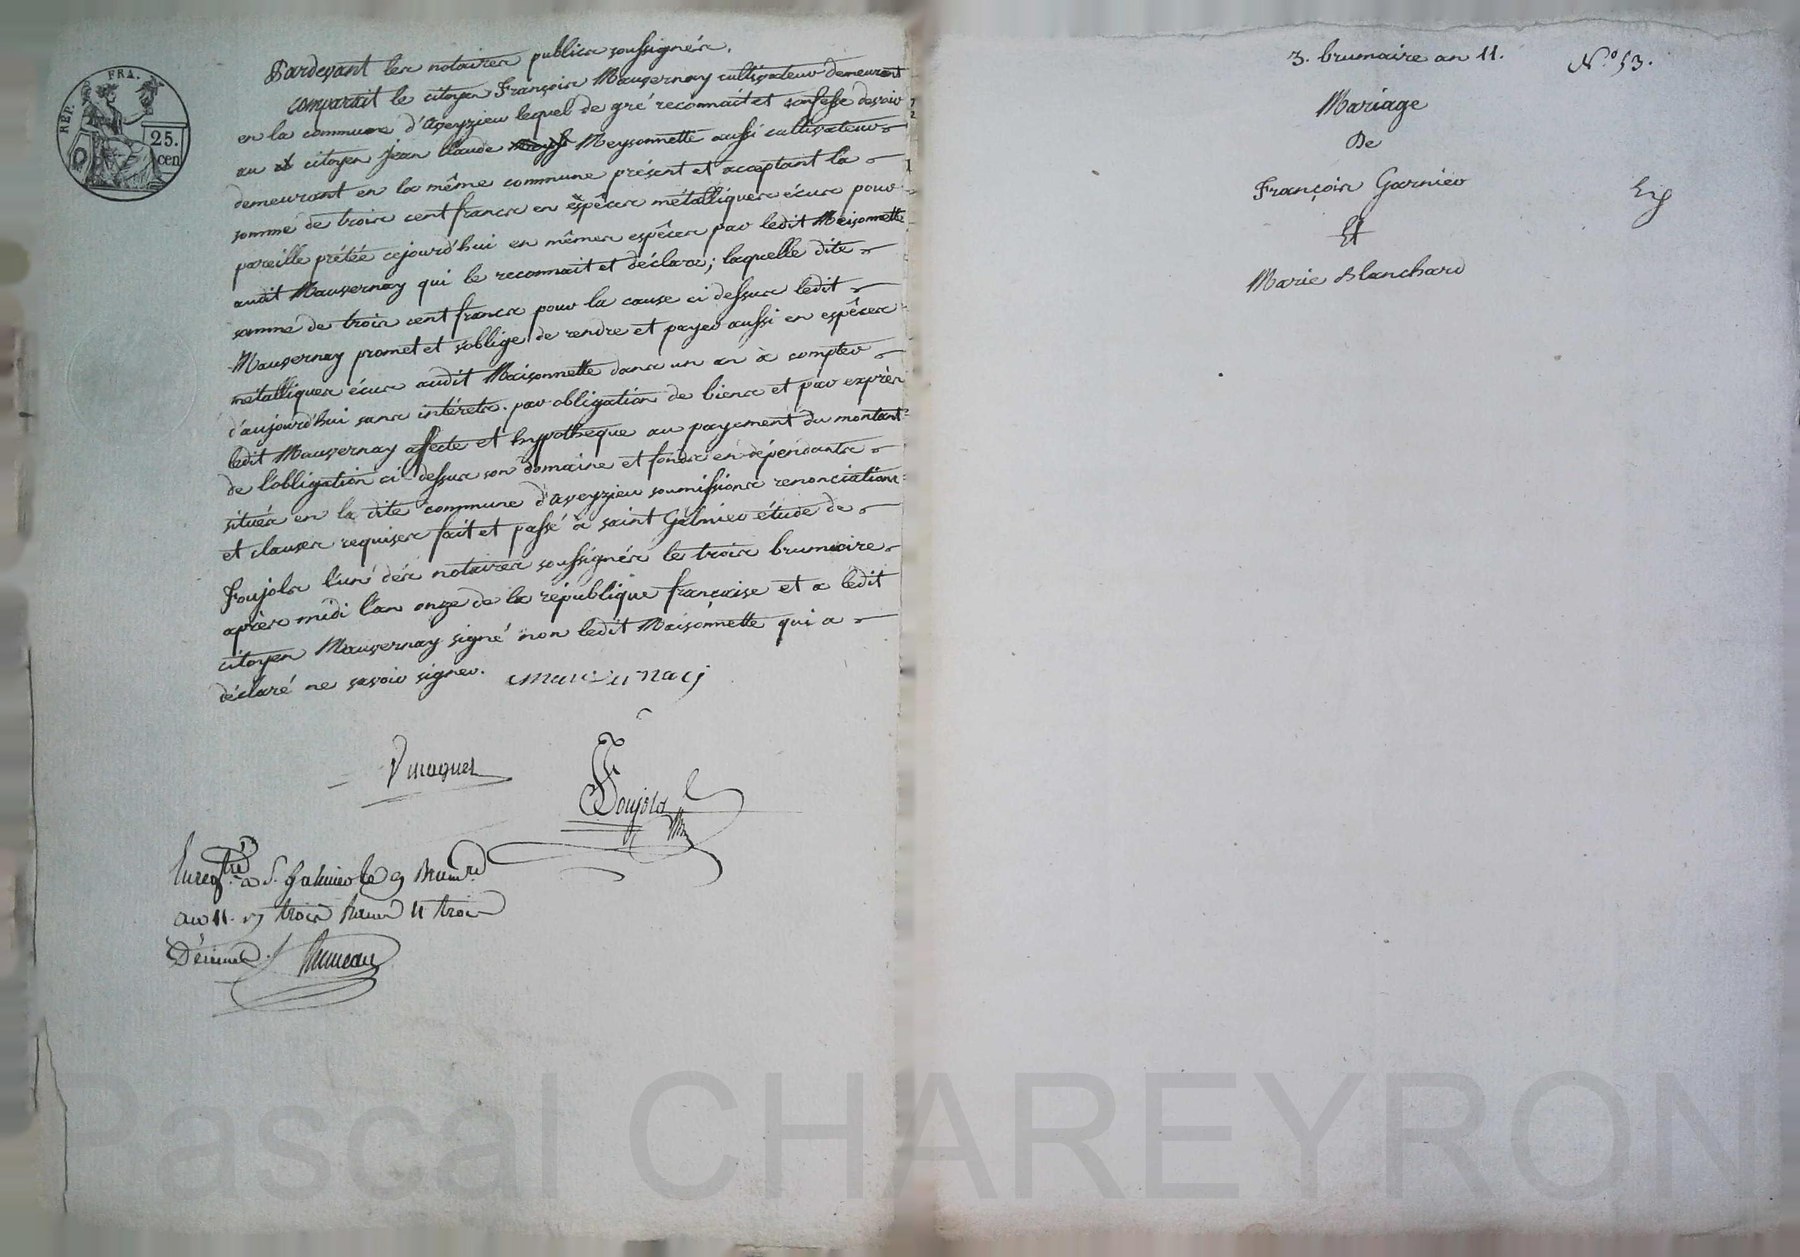 REP. FRA.
25.
cen
Pardevant les notaires publics soussignés,
comparait le citoyen François Mauvernay cultivateur demeurant
en la commune d'aveyzieu lequel de gré reconnait et confesse devoir
au citoyen jean claude Meysonnette aussi cultivateur
demeurant en la même commune présent et acceptant la
somme de trois cent francs en espêces métalliques écus pour
pareille prêtée cejourd'hui en mêmes espêces par ledit Meisonnette
audit Mauvernay qui le reconnait et déclare; laquelle dite
somme de trois cent francs pour la cause ci dessus ledit
Mauvernay promet et s'oblige de rendre et payer aussi en espêces
métalliques écus audit Maisonnette dans un an à compter
d'aujourd'hui sans intérets. par obligation de biens et par exprès
ledit Mauvernay affecte et hypotheque au payement du montant
de l'obligation ci dessus son domaine et fonds en dépendants
situés en la dite commune d'aveyzieu soumissions renonciations
et clauses requises fait et passé à saint Galmier étude de
Foujols l'un des notaires soussignés le trois brumaire
après midi l'an onze de la république française et a ledit
citoyen Mauvernay signé non ledit Maisonnette qui a
déclaré ne savoir signer.
Foujols
Enregtré à St. Galmier le 9 Brumre
an 11. trois trois
Décimes.
3. brumaire an 11. N.° 53.
Mariage
De
François Garnier
Et
Marie Blanchard
Pascal CHAREYRON